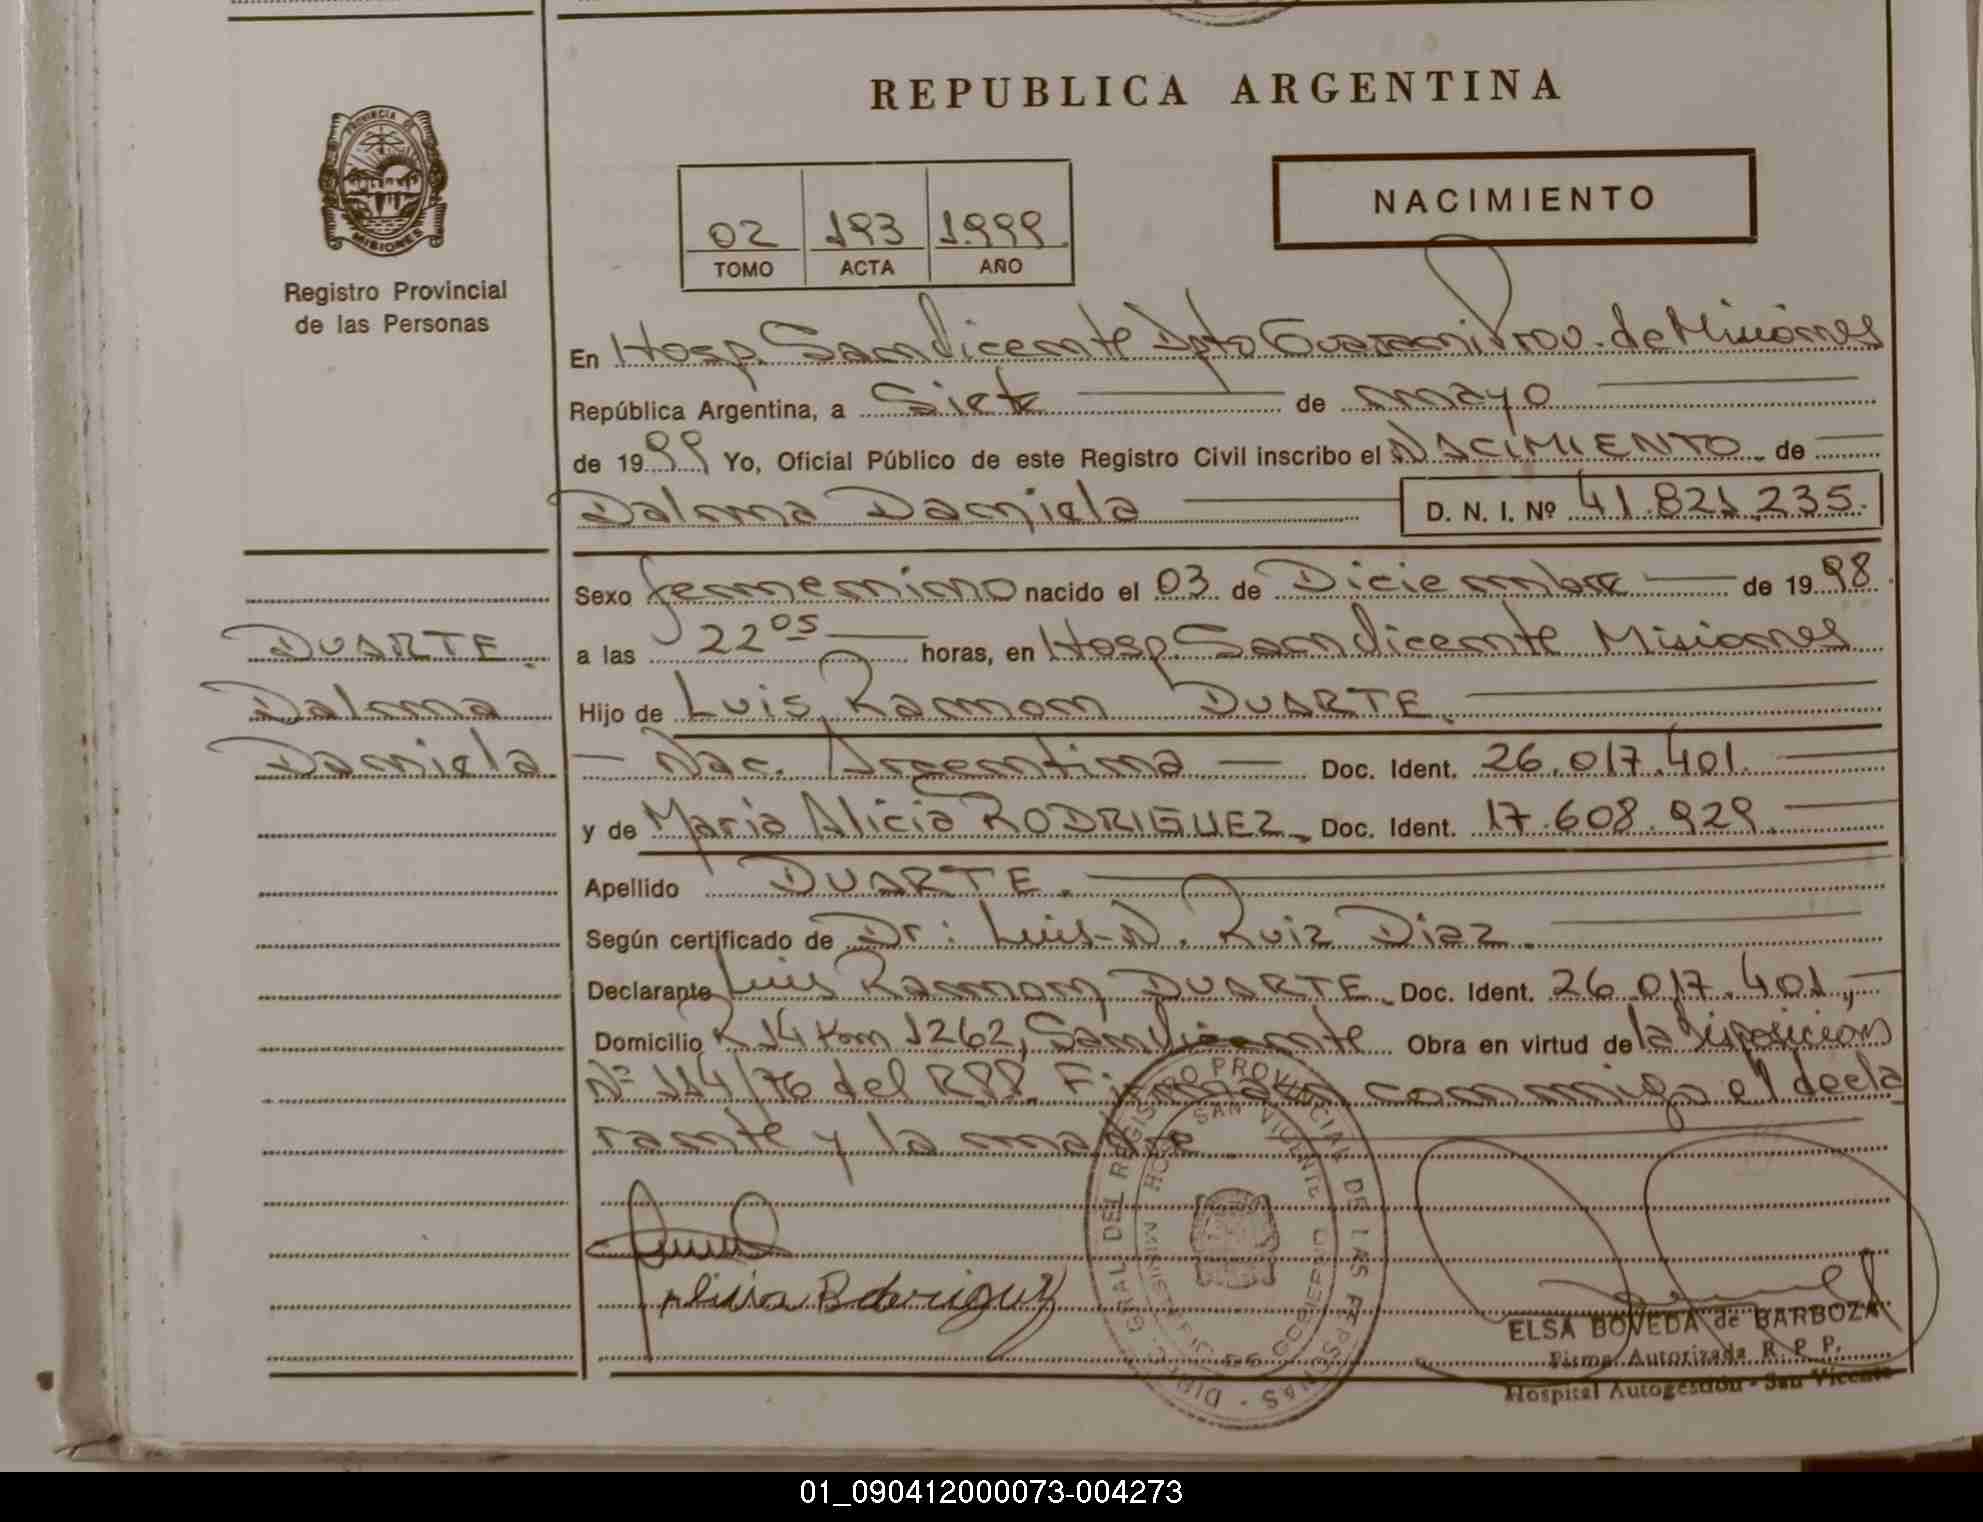 REPUBLICA ARGENTINA
PROVINCIA DE
MISIONES
Registro Provincial
de las Personas
NACIMIENTO
02 193 1.999
TOMO ACTA AÑO
En Hosp. San Vicente Dpto Guarani Prov. de Misiones
República Argentina, a Siete de mayo
de 1999 Yo, Oficial Público de este Registro Civil inscribo el NACIMIENTO de
Dalma Daniela D. N. I. Nº 41.821.235.
Sexo femenino nacido el 03 de Diciembre de 1998.
DUARTE.
a las 22 05 horas, en Hosp San Vicente Misiones
Dalma
Hijo de Luis Ramon DUARTE.
Daniela
Nac. Argentina Doc. Ident. 26.017.401.
y de Maria Alicia RODRIGUEZ. Doc. Ident. 17.608.929.
Apellido DUARTE.
Según certificado de Dr: Luis N. Ruiz Diaz.
Declarante Luis Ramon DUARTE. Doc. Ident. 26.017.401,
Domicilio R 14 Km 1262, San Vicente Obra en virtud de la disposicion
Nº 114/76 del RPP. Firman conmigo el decla
rante y la madre.
DIRC. GRAL DEL REGISTRO PROVINCIAL DE LAS PERSONAS
SAN VICENTE
Alicia Roderiguz
ELSA BOVEDA de BARBOZA
Firma Autorizada R. P. P.
Hospital Autogestión - San Vicente
01_090412000073-004273